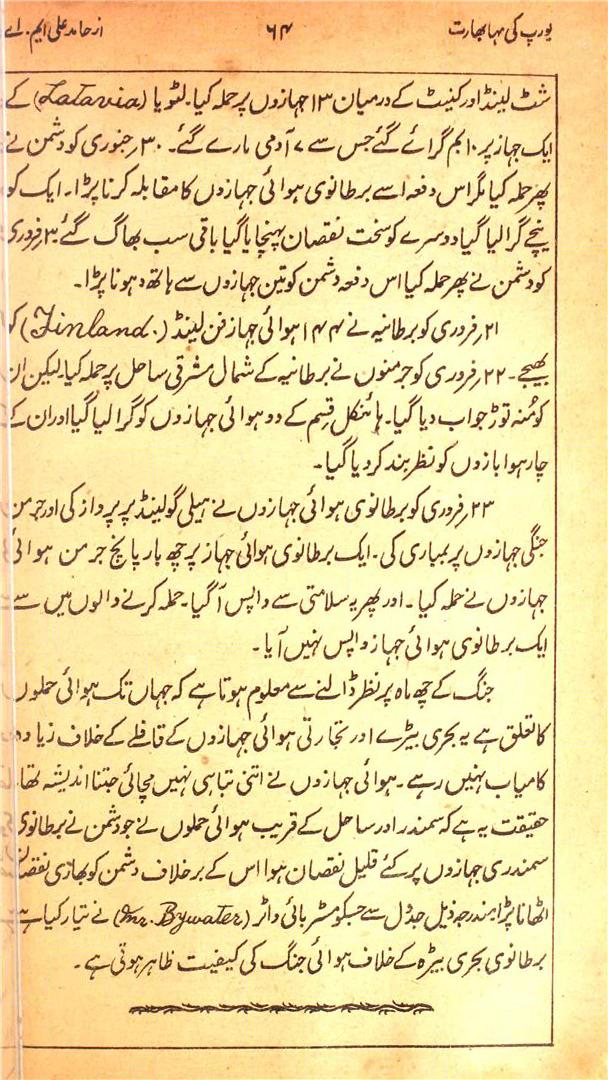 یورپ کی مہا بھارت ۶۴ از حامد علی ایم. اے
شٹ لینڈ اور کینٹ کے درمیان ۱۳ جہازوں پر حملہ کیا۔ لٹویا (Latavia) کے
ایک جہاز پر ۱۰ بم گرائے گئے جس سے ۷ آدمی مارے گئے۔ ۳۰؍ جنوری کو دشمن نے
پھر حملہ کیا مگر اس دفعہ اسے برطانوی ہوائی جہازوں کا مقابلہ کرنا پڑا۔ ایک کو
نیچے گرا لیا گیا دوسرے کو سخت نقصان پہنچایا گیا باقی سب بھاگ گئے۔ ۳؍ فروری
کو دشمن نے پھر حملہ کیا اس دفعہ دشمن کو تین جہازوں سے ہاتھ دھونا پڑا۔
۲۱؍ فروری کو برطانیہ نے ۱۴۴ ہوائی جہاز فن لینڈ (Finland.) کو
بھیجے۔ ۲۲؍ فروری کو جرمنوں نے برطانیہ کے شمال مشرقی ساحل پر حملہ کیا۔ لیکن ان
کو مُنہ توڑ جواب دیا گیا۔ ہائنکل قسم کے دو ہوائی جہازوں کو گرا لیا گیا اور ان کے
چار ہوا بازوں کو نظر بند کر دیا گیا۔
۲۳؍ فروری کو برطانوی ہوائی جہازوں نے ہیلی گولینڈ پر پرواز کی اور جرمن
جنگی جہازوں پر بمباری کی۔ ایک برطانوی ہوائی جہاز پر چھ بار پانچ جرمن ہوائی
جہازوں نے حملہ کیا۔ اور پھر یہ سلامتی سے واپس آ گیا۔ حملہ کرنے والوں میں سے
ایک برطانوی ہوائی جہاز واپس نہیں آیا۔
جنگ کے چھ ماہ پر نظر ڈالنے سے معلوم ہوتا ہے کہ جہاں تک ہوائی حملوں
کا تعلق ہے یہ بحری بیڑے اور تجارتی ہوائی جہازوں کے قافلے کے خلاف زیادہ
کامیاب نہیں رہے۔ ہوائی جہازوں نے اتنی تباہی نہیں مچائی جتنا اندیشہ تھا۔
حقیقت یہ ہے کہ سمندر اور ساحل کے قریب ہوائی حملوں نے جو دشمن نے برطانوی
سمندری جہازوں پر کئے قلیل نقصان ہوا اس کے برخلاف دشمن کو بھاری نقصان
اٹھانا پڑا مندرجہ ذیل جدول سے جسکو مسٹر بائی واٹر (Mr. Bywater) نے تیار کیا ہے
برطانوی بحری بیڑہ کے خلاف ہوائی جنگ کی کیفیت ظاہر ہوتی ہے۔